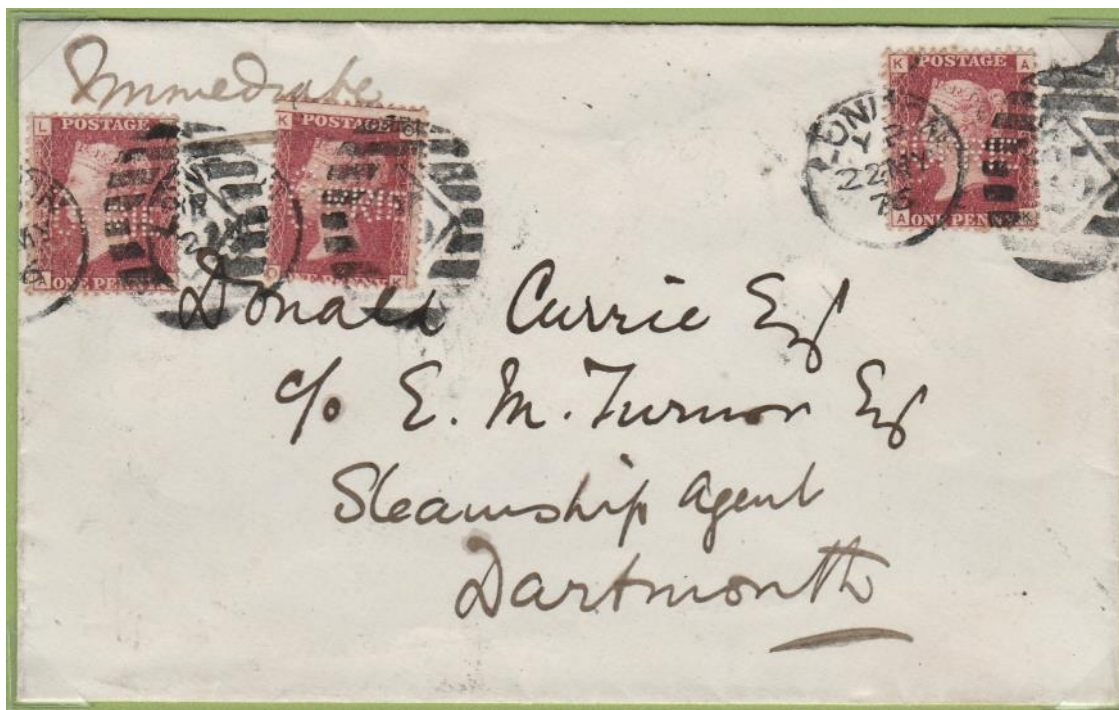 Immediate
L POSTAGE
A ONE PENNY
K POSTAGE O
O ONE PENNY K
K POSTAGE A
A ONE PENNY K
LONDON
22 MY
76
Donald Currie Esq
c/o E. M. Turnor Esq
Steamship Agent
Dartmouth